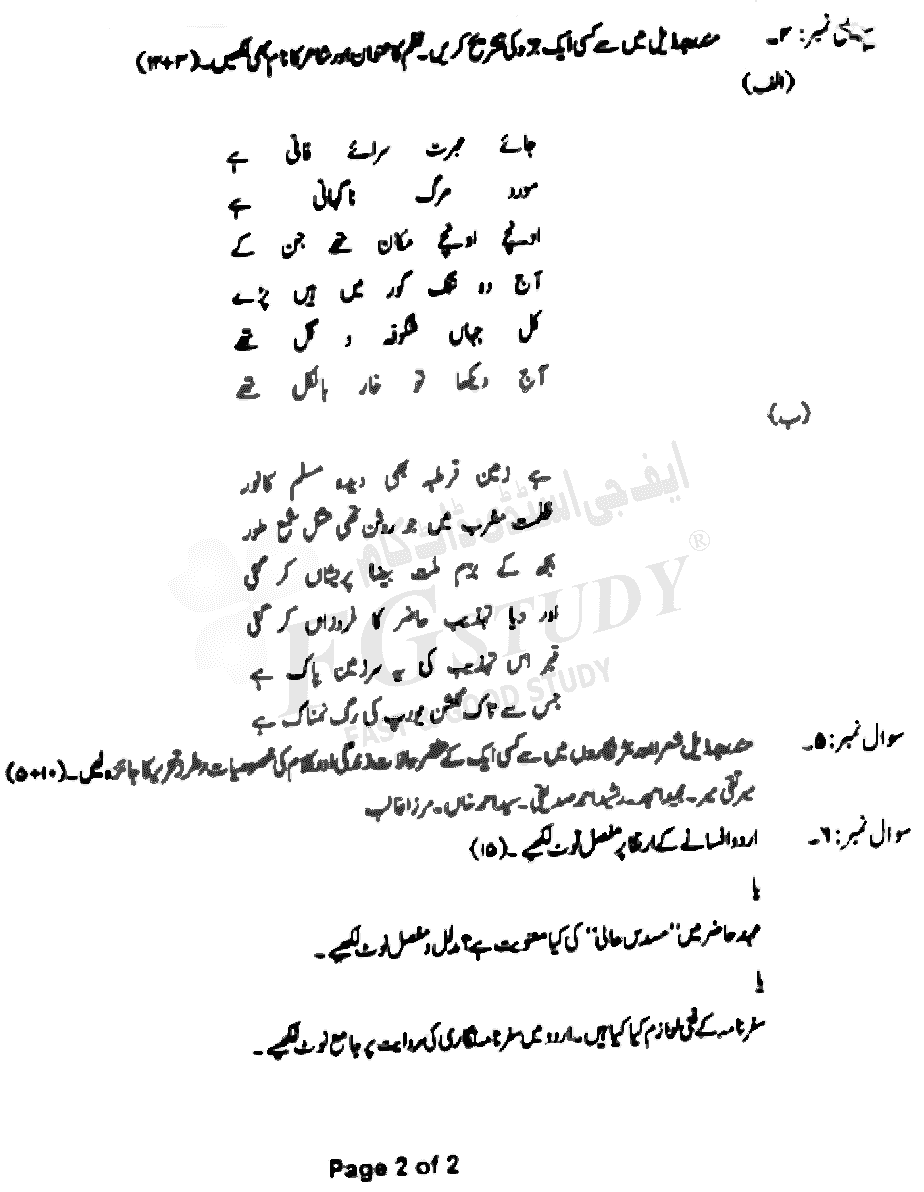 سوال نمبر: ۴۔ مندرجہ ذیل میں سے کسی ایک جزو کی تشریح کریں۔ نظم کا عنوان اور شاعر کا نام بھی لکھیں۔ (۱۲+۳)
(الف)
جائے عبرت سرائے فانی ہے
مورد مرگ ناگہانی ہے
اونچے اونچے مکان تھے جن کے
آج وہ تنگ گور میں ہیں پڑے
کل جہاں شگوفہ و گل تھے
آج دیکھا تو خار بالکل تھے
(ب)
ہے زمین قرطبہ بھی دیدہ مسلم کا نور
ظلمت مغرب میں جو روشن تھی مثل شمع طور
بجھ کے بزم ملت بیضا پریشاں کر گئی
اور دیا تہذیب حاضر کا فروزاں کر گئی
قبر اس تہذیب کی یہ سرزمین پاک ہے
جس سے تاک گلشن یورپ کی رگ نمناک ہے
سوال نمبر: ۵۔ مندرجہ ذیل شعرا اور نثر نگاروں میں سے کسی ایک کے مختصر حالات زندگی اور کلام کی خصوصیات و طرز تحریر کا جائزہ لیں۔ (۱۰+۵)
میر تقی میر۔ مجید امجد۔ رشید احمد صدیقی۔ سید احمد خاں۔ مرزا غالب
سوال نمبر: ۶۔ اردو افسانے کے ارتقا پر مفصل نوٹ لکھیے۔ (۱۵)
یا
عہد حاضر میں "مسدس حالی" کی کیا معنویت ہے؟ مدلل و مفصل نوٹ لکھیے۔
یا
سفرنامہ کے فنی لوازم کیا کیا ہیں۔ اردو میں سفرنامہ نگاری کی روایت پر جامع نوٹ لکھیے۔
ایف جی اسٹڈی ڈاٹ کام
FG STUDY®
EASY & GOOD STUDY
Page 2 of 2